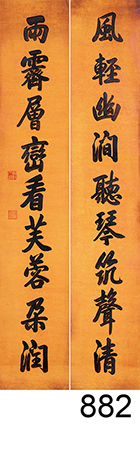 風輕幽澗聽琴筑聲清
雨霽層巒看芙蓉朵潤
882